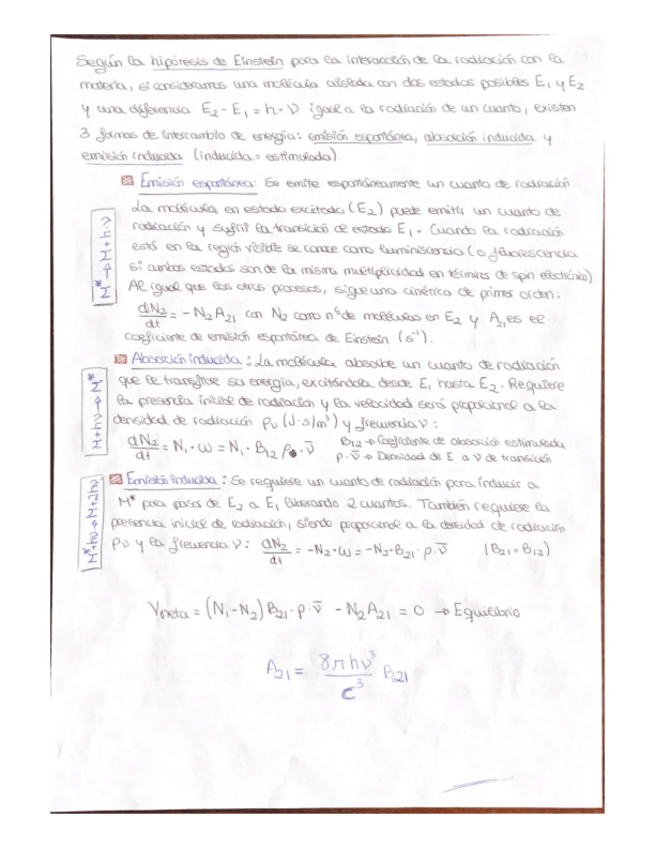 Según la hipótesis de Einstein para la interacción de la radiación con la
materia, si consideramos una molécula aislada con dos estados posibles E₁ y E₂
y una diferencia E₂ - E₁ = h·ν igual a la radiación de un cuanto, existen
3 formas de intercambio de energía: emisión espontánea, absorción inducida y
emisión inducida (inducida = estimulada).
Emisión espontánea: Se emite espontáneamente un cuanto de radiación.
La molécula en estado excitado (E₂) puede emitir un cuanto de
radiación y sufrir la transición de estado E₁. Cuando la radiación
está en la región visible se conoce como luminiscencia (o fluorescencia
si ambos estados son de la misma multiplicidad en términos de spin electrónico)
Al igual que los otros procesos, sigue una cinética de primer orden:
dN₂/dt = - N₂ A₂₁ con N₂ como nº de moléculas en E₂ y A₂₁ es el
coeficiente de emisión espontánea de Einstein (s⁻¹).
M* → M + hν
Absorción inducida: La molécula absorbe un cuanto de radiación
que le transfiere su energía, excitándola desde E₁ hasta E₂. Requiere
la presencia inicial de radiación y la velocidad será proporcional a la
densidad de radiación ρν (J·s/m³) y frecuencia ν:
dN₂/dt = N₁·ω = N₁·B₁₂ ρ·ν̄ B₁₂ → Coeficiente de absorción estimulada
ρ·ν̄ → Densidad de E a ν de transición
M + hν → M*
Emisión inducida: Se requiere un cuanto de radiación para inducir a
M* para pasar de E₂ a E₁ liberando 2 cuantos. También requiere la
presencia inicial de radiación, siendo proporcional a la densidad de radiación
ρν y la frecuencia ν: dN₂/dt = -N₂·ω = -N₂·B₂₁·ρ·ν̄ (B₂₁ = B₁₂)
M* + hν → M + 2hν
Vneta = (N₁ - N₂) B₂₁·ρ·ν̄ - N₂A₂₁ = 0 → Equilibrio
A₂₁ = 8πhν³/c³ B₂₁